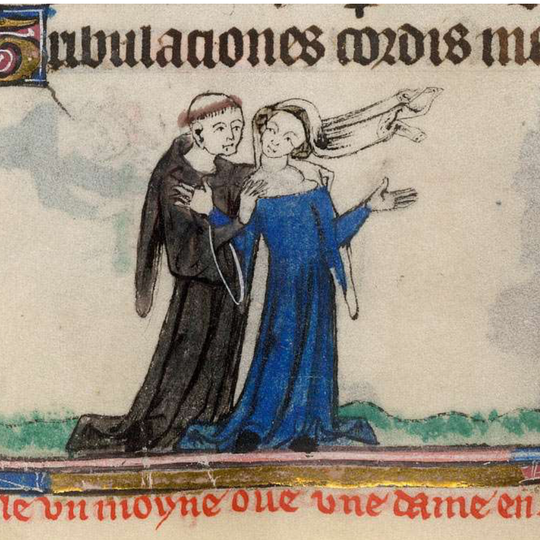 Tribulaciones cordis me
le vn moyne oue vne dame en